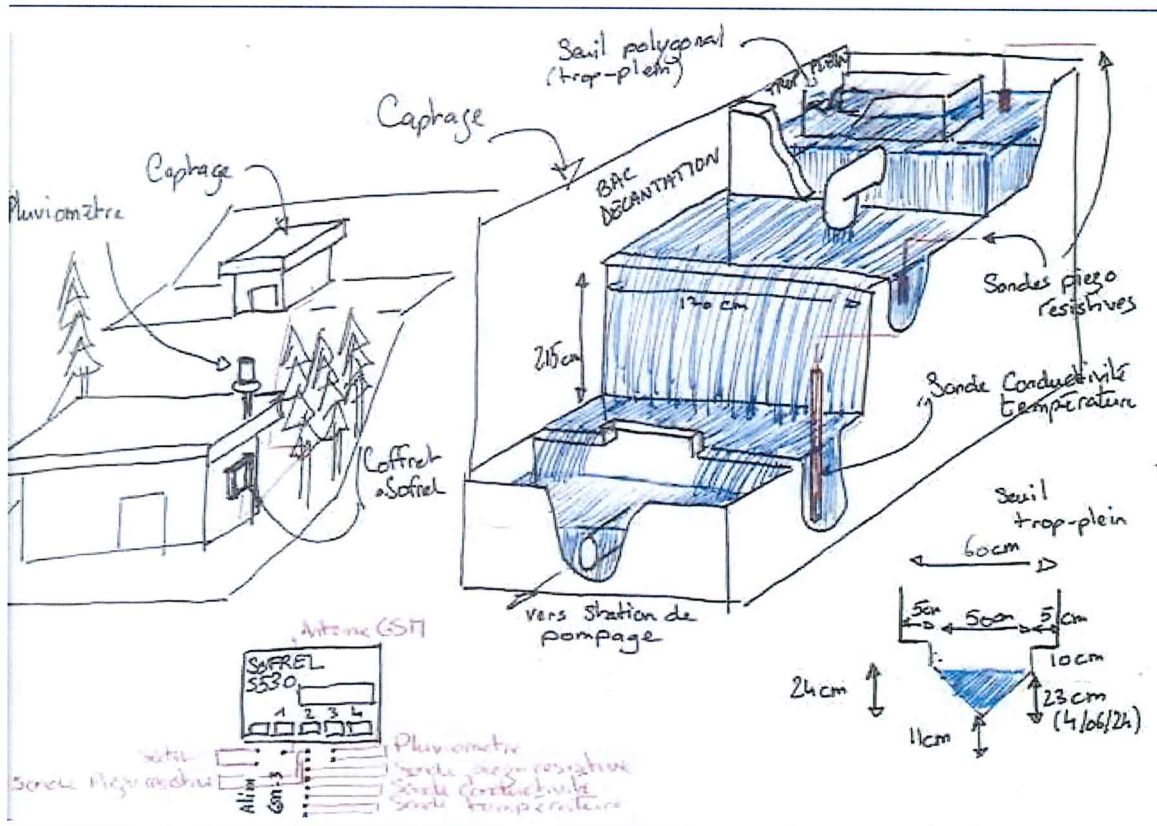 Seuil polygonal
(trop-plein)
TROP PLEIN
Captage
Captage
Pluviomètre
BAC
DÉCANTATION
Sondes piezo
resistives
130 cm
215cm
Sonde Conductivité
température
Coffret
Sofrel
Seuil
trop-plein
60cm
5cm
50cm
5 cm
10cm
24cm
23cm
(4/06/24)
11cm
vers station de
pompage
Antenne GSM
SOFREL
S530
1 2 3 4
Pluviometre
Sonde piezoresistive
Sonde Piezoresistive
Sonde Conductivité
Sonde température
Alim